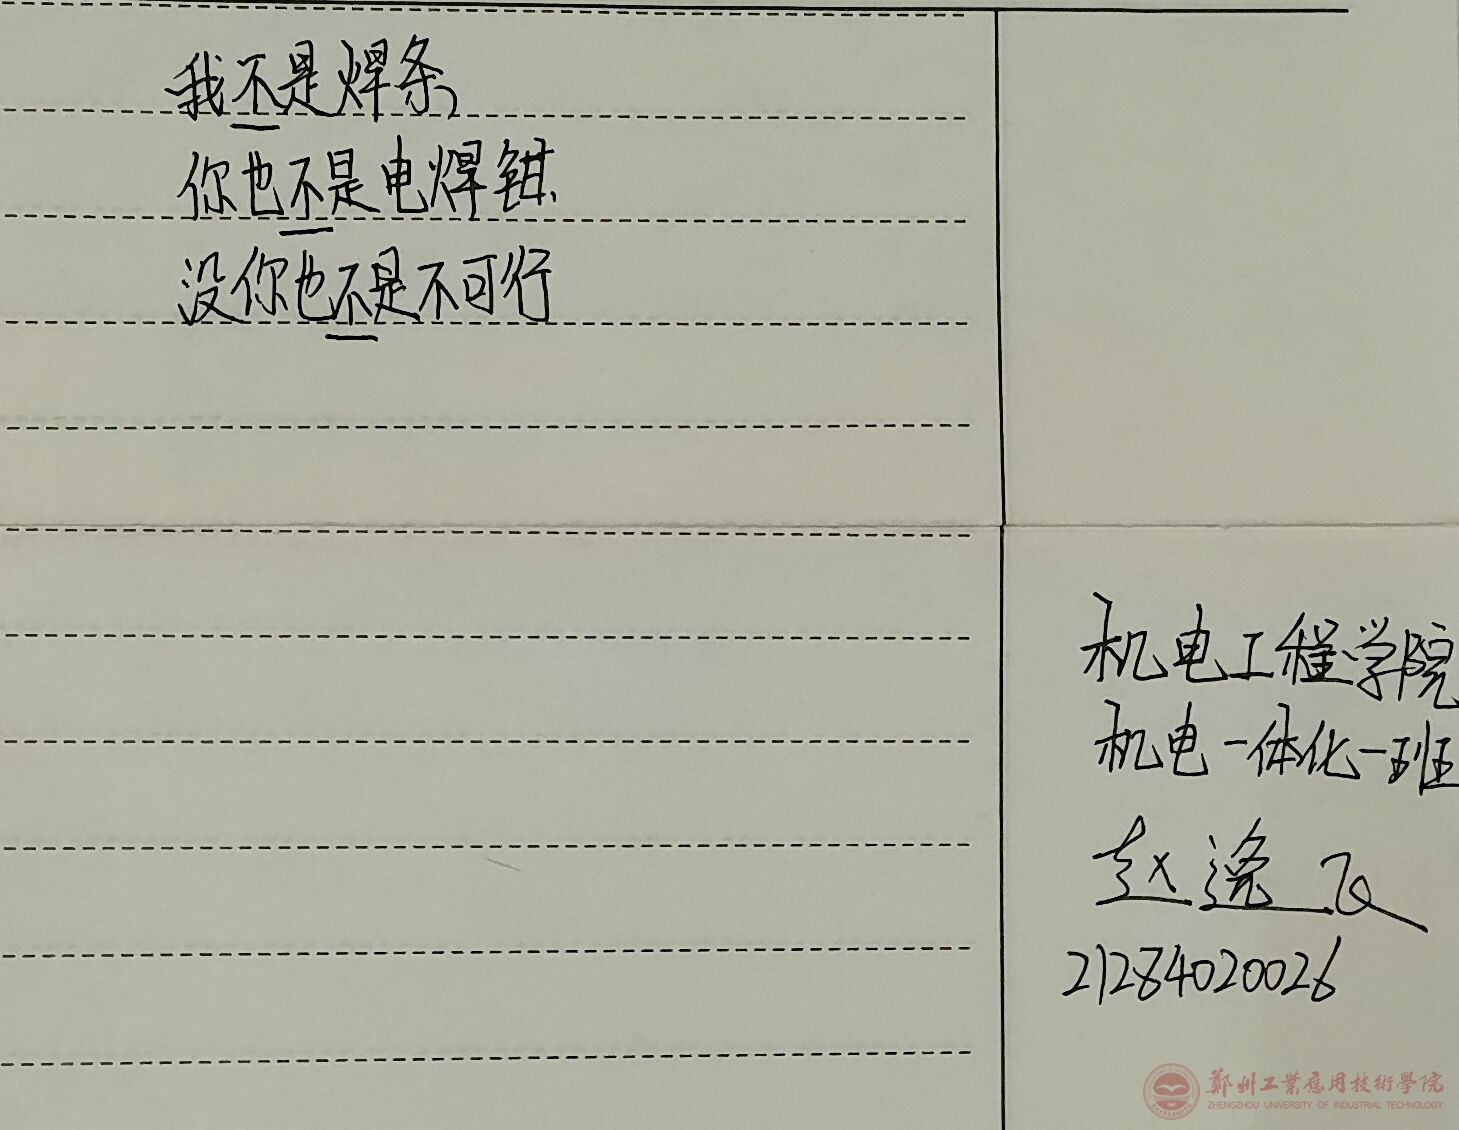 我不是焊条,
你也不是电焊钳、
没你也不是不可行
机电工程学院
机电一体化一班
赵逸飞
21284020026
鄭州工業應用技術學院
ZHENGZHOU UNIVERSITY OF INDUSTRIAL TECHNOLOGY